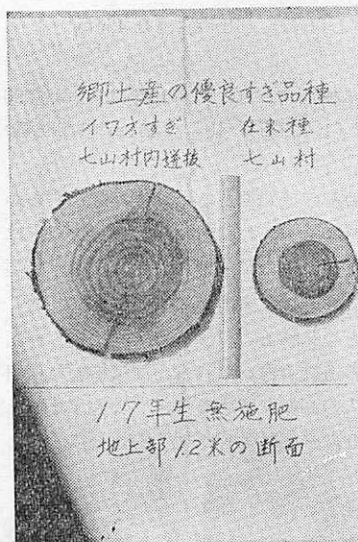 郷土産の優良すぎ品種
イワオすぎ 在来種
七山村内選抜 七山村
17年生無施肥
地上部1.2米の断面